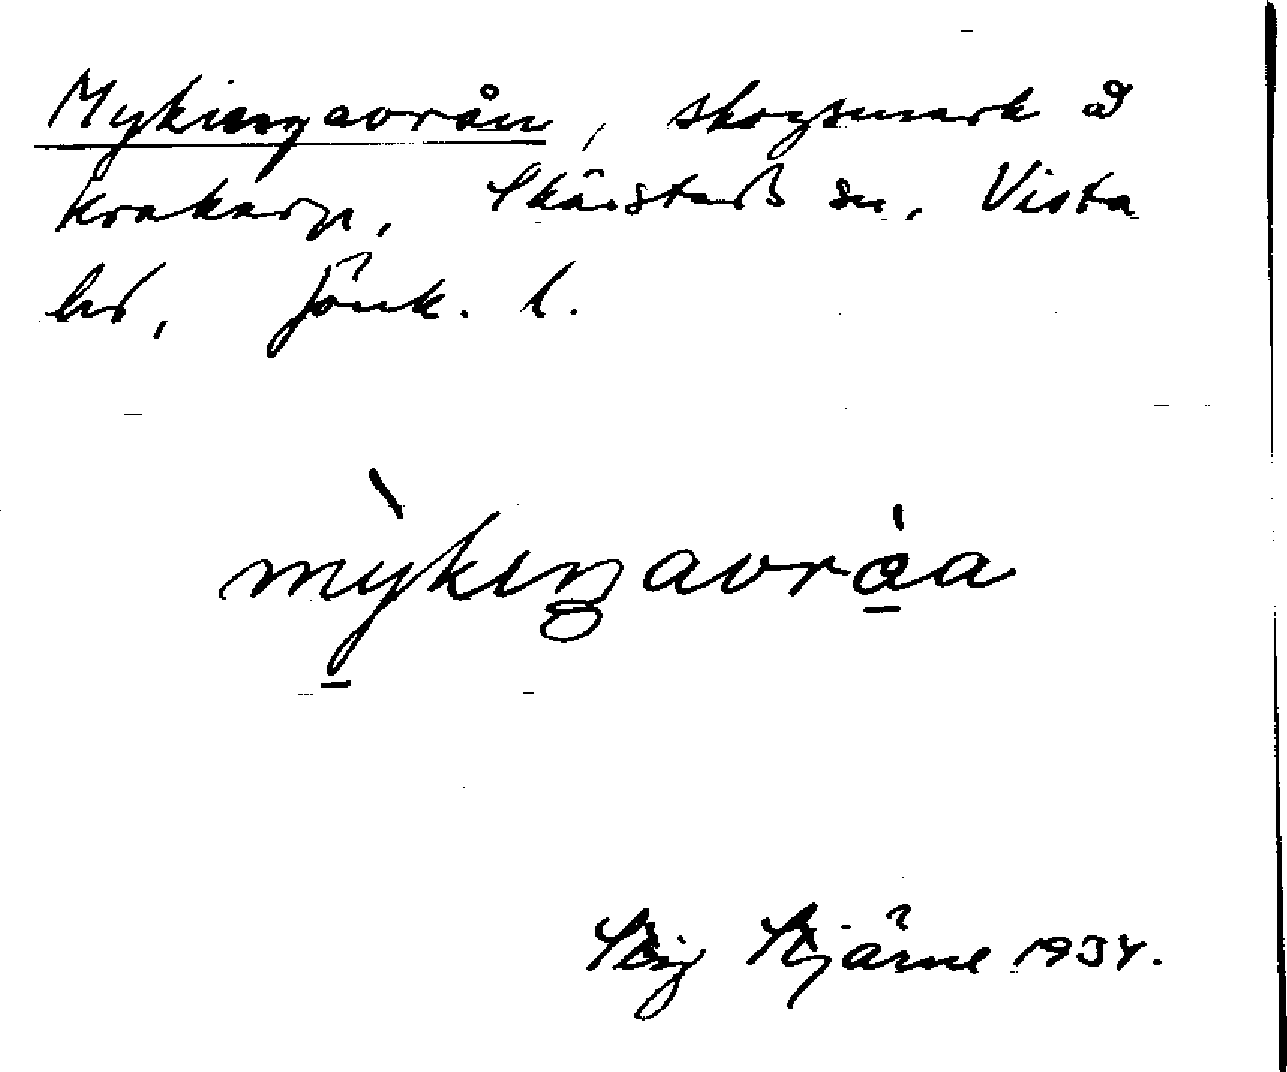 Mykingavrån, skogsmark å
Krakarp, Skärstads sn, Vista
hd, Jönk. l.
mỳkɩŋavrȧ̱a
Stig Stjärne 1934.